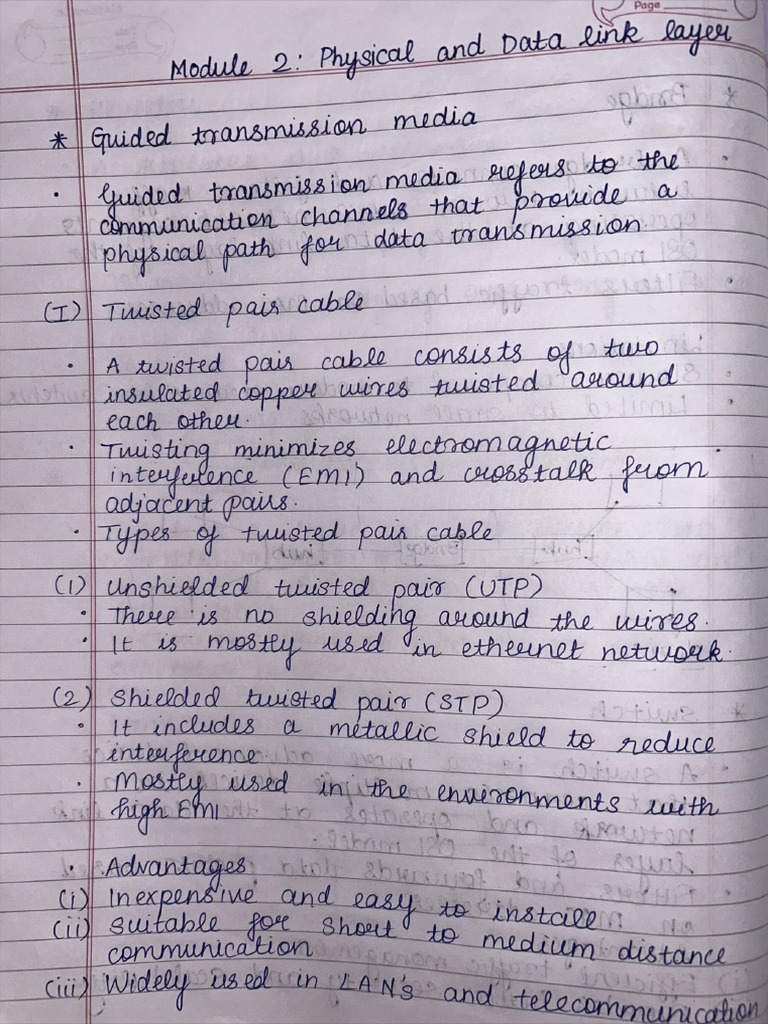 Page
Module 2: Physical and Data link layer
* Guided transmission media
• Guided transmission media refers to the
communication channels that provide a
physical path for data transmission
(I) Twisted pair cable
• A twisted pair cable consists of two
insulated copper wires twisted around
each other.
• Twisting minimizes electromagnetic
interference (EMI) and crosstalk from
adjacent pairs.
• Types of twisted pair cable
(1) Unshielded twisted pair (UTP)
• There is no shielding around the wires.
• It is mostly used in ethernet network.
(2) Shielded twisted pair (STP)
• It includes a metallic shield to reduce
interference
• Mostly used in the environments with
high EMI
• Advantages
(i) Inexpensive and easy to install
(ii) Suitable for short to medium distance
communication
(iii) Widely used in LAN's and telecommunication